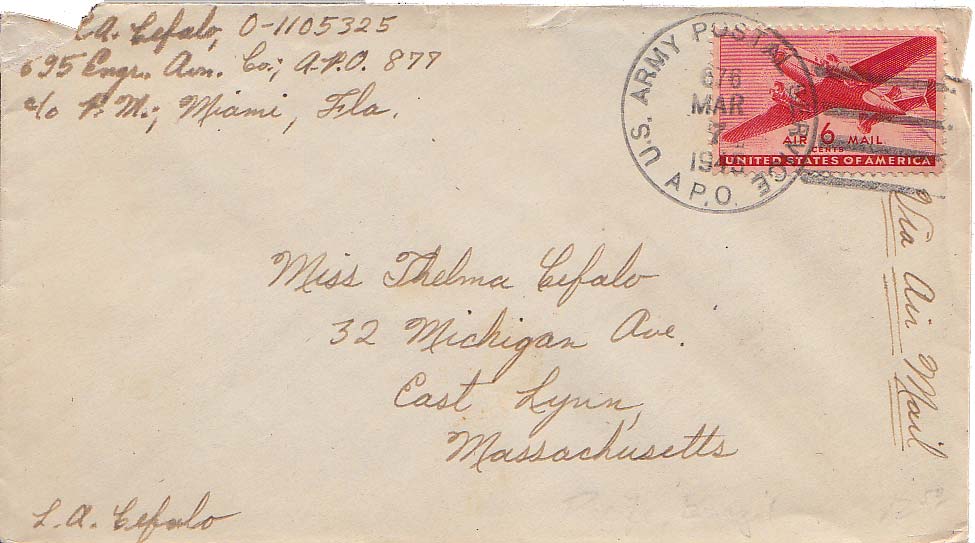 L.A. Cefalo, O-1105325
695 Engr. Avn. Co.; A.P.O. 877
c/o P.M.; Miami, Fla.
U.S. ARMY POSTAL SERVICE
876
MAR
7
A.P.O.
AIR 6 MAIL
CENTS
UNITED STATES OF AMERICA
Via Air Mail
Miss Thelma Cefalo
32 Michigan Ave.
East Lynn,
Massachusetts
L.A. Cefalo